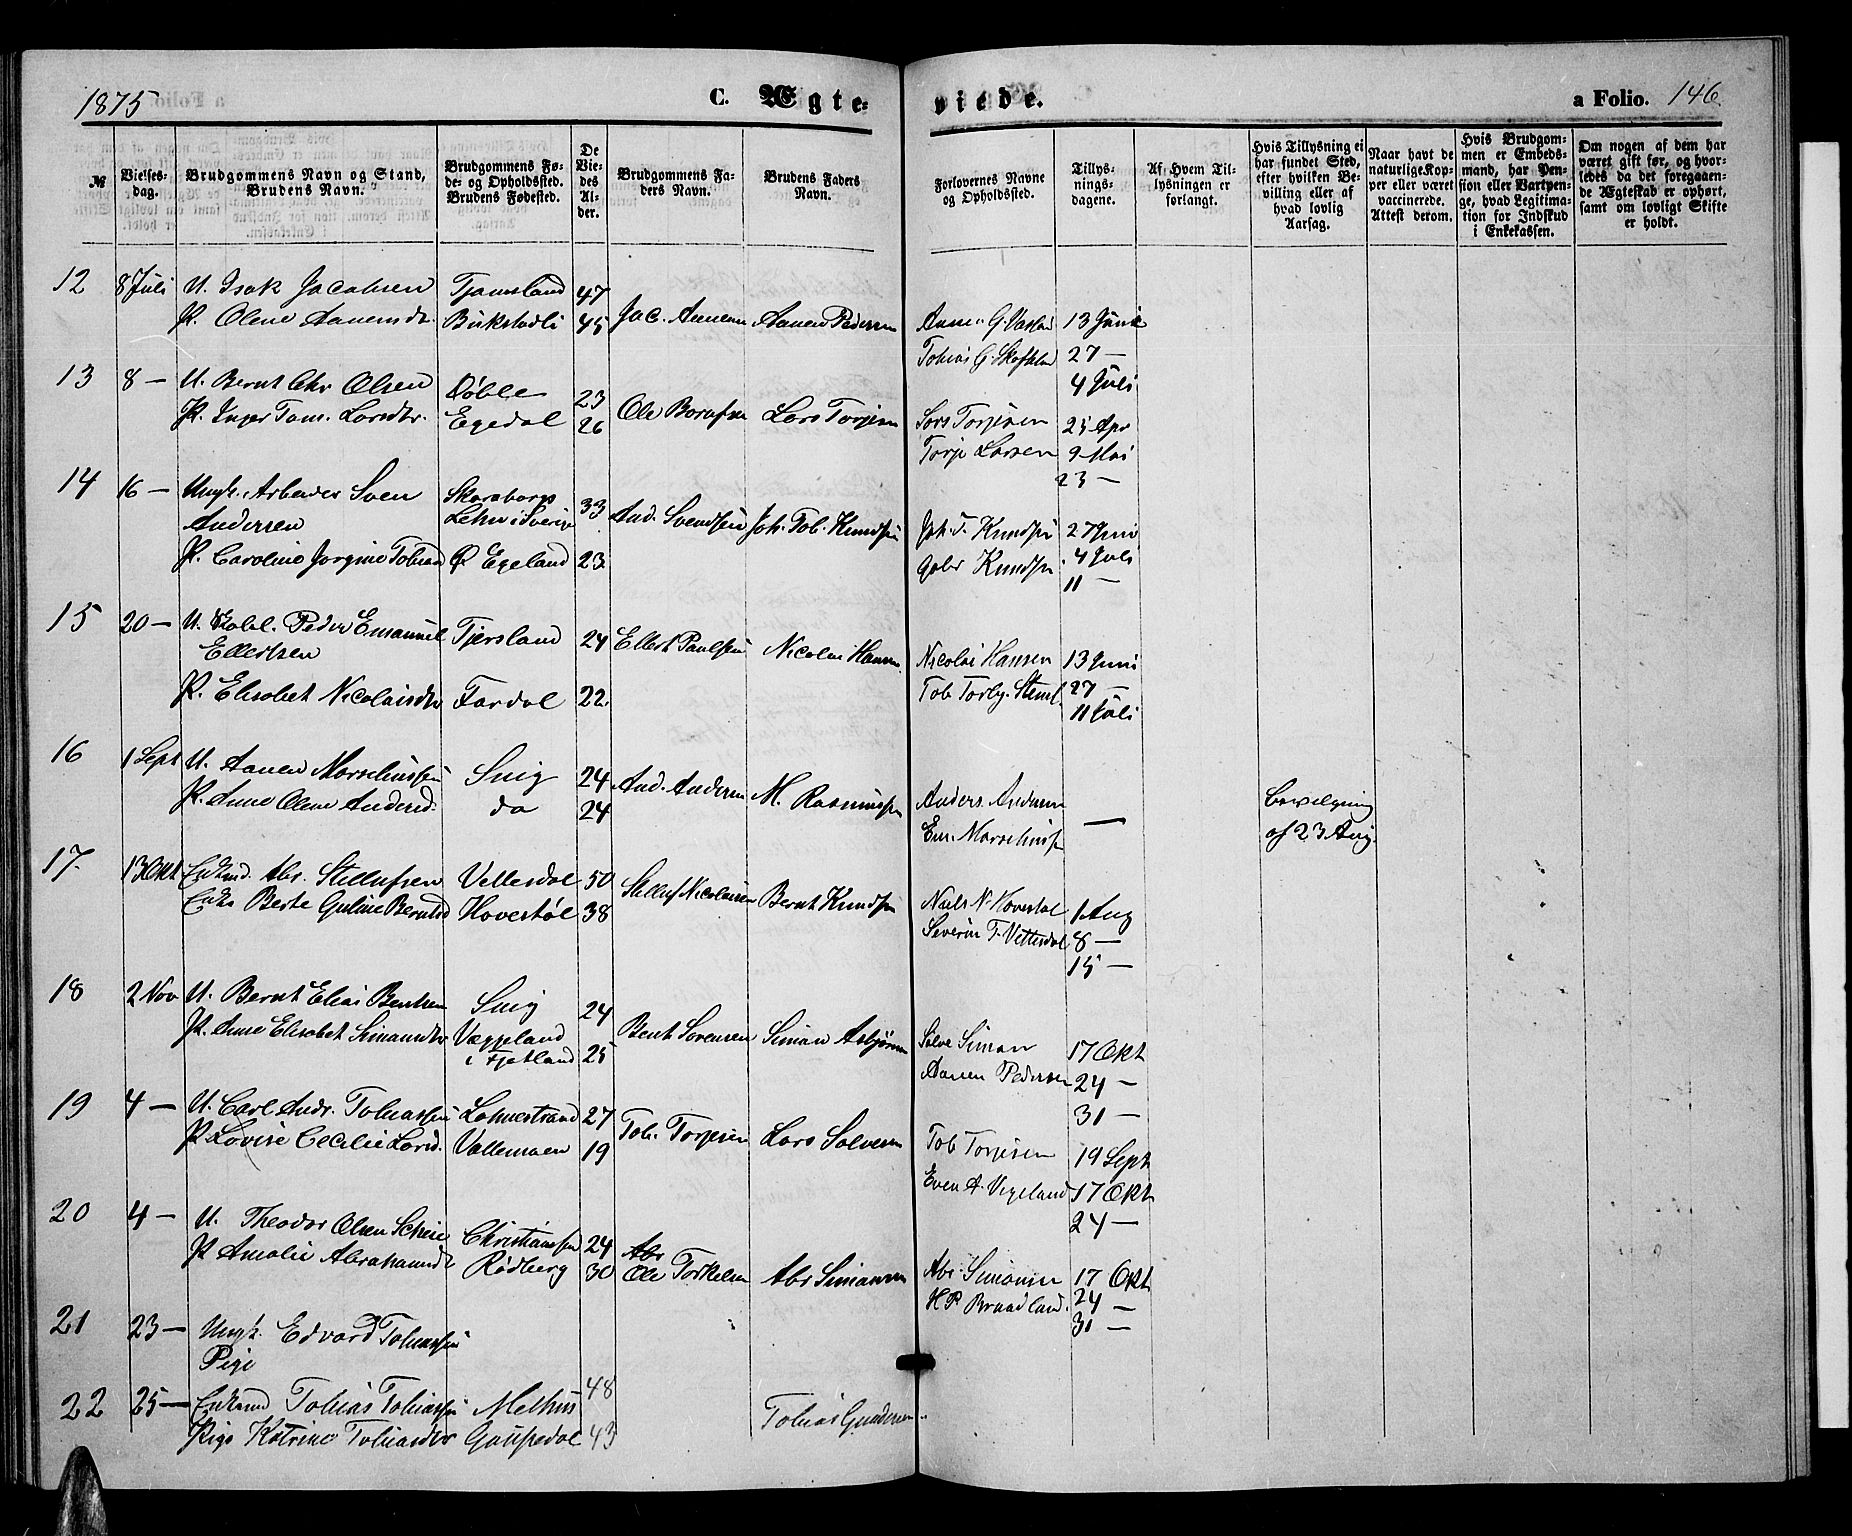 1875
C. Ægteviede.
a Folio. 146.
№
Vielses-
dag.
Brudgommens Navn og Stand,
Brudens Navn.
Brudgommens Fø-
de- og Opholdssted.
Brudens Fødested.
De
Vie-
des
Al-
der.
Brudgommens Fa-
ders Navn.
Brudens Faders
Navn.
Forlovernes Navne
og Opholdssted.
Tillys-
nings-
dagene.
Af Hvem Til-
lysningen er
forlangt.
Hvis Tillysning ei
har fundet Sted,
efter hvilken Be-
villing eller af
hvad lovlig
Aarsag.
Naar havt de
naturlige Kop-
per eller været
vaccinerede.
Attest derom.
Hvis Brudgom-
men er Embeds-
mand, har Pen-
sion eller Vartpen-
ge, hvad Legitima-
tion for Indskud
i Enkekassen.
Om nogen af dem har
været gift før, og hvor-
ledes da det foregaaen-
de Ægteskab er ophørt,
samt om lovligt Skifte
er holdt.
12 8 Juli U. Isak Jacobsen Tjomsland 47
P. Olene Aanensdr. Birkstødli 45 Jac. Aanensen Aanen Pedersen
13 Juni
Tobias G. 27 —
4 Juli
13 8 — U. Bernt Chr Olsen Døble 23
P. Inger Tom. Larsdtr. Egedal 26 Ole Lars Torjesen
Lars Torjesen 25 Apr
Torje Larsen 9 Mai
23 —
14 16 — Ungk. Arbeider Sven
Andersen
Skaraborgs
Lehn i Sverige 33 And. Svendsen Joh. Tob. Knudsen
P. Caroline Jorgine Tobiasd Ø Egeland 23
Joh. T. Knudsen 27 Juni
Gabr Knudsen 4 Juli
11 —
15 20 — U. Peder Emanuel
Ellertsen
Tjersland 24 Ellert Paulsen Nicolai Hansen
P. Elisabet Nicolaisdtr Fardal 22
Nicolai Hansen 13 Juni
Tob Torby. 27 —
11 Juli
16 1 Sept U. Aanen Marselinssen Snig 24
P. Anne Olene Andersd. do 24 And. Andersen M. Rasmussen
Anders Andersen
Em. Marselinss —
Bevilgning
af 23 Aug.
17. 13 Okt Enkmd. Abr. Stillufsen Vellesdal 50
Enke Berte Guline Berntsd Hovestøl 38 Stilluf Nicolaisen Bernt Knudsen
Niels N. Hovestøl 1 Aug
Severin T. Vellesdal 8 —
15 —
18 2 Nov U. Bernt Elias Bentsen Snig 24
P. Anne Elisabet Simonsdtr Væppeland
i Fjotland 25 Bent Sørensen Simon Asbjørns
Salve Simon 17 Okt
Aanen Pedersen 24 —
31 —
19 4 — U. Carl Andr. Tobiassen Lohnestrand 27
P. Lovise Cecilie Larsd. Vallemoen 19 Tob. Torjesen Lars Salvesen
Tob Torjesen 19 Sept
Even A. Vigeland 17 Okt
24 —
20 4 — U. Theodor Olsen Scheie Christianss 24
P. Amalie Abrahamsd Rødberg 30
Abr
Ole Torkelsen Abr Simonsen
Abr. Simonsen 17 Okt
H P Braadland. 24 —
31 —
21 23 — Ungk. Edvard Tobiassen
Pige
22 25 — Enkemd Tobias Tobiassen Melhus 48
Pige Katrine Tobiasdtr Goupedal 43
Tobias Gundersen